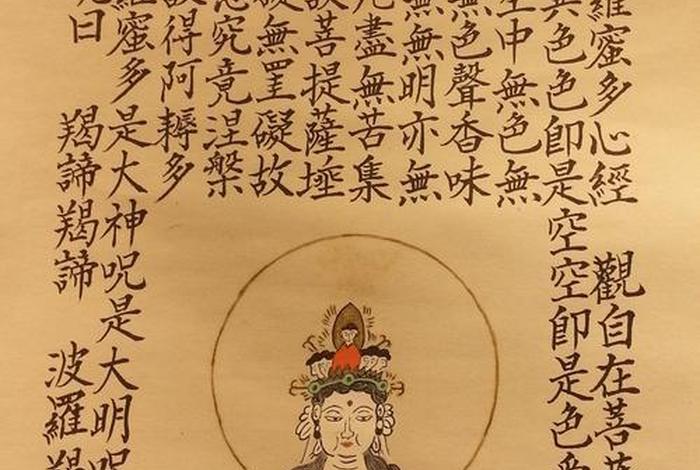 羅蜜多心經 觀自在菩
異色色卽是空空卽是色
空中無色無
無色聲香味
無無明亦無
盡無苦集
故菩提薩埵
礙無罣礙故
究竟涅槃
故得阿耨多
羅蜜多是大神呪是大明呪
曰 羯諦羯諦 波羅羯